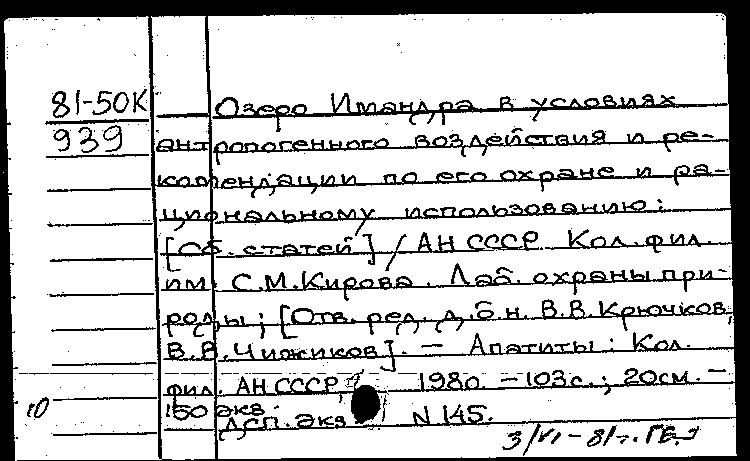 81-50К Озеро Имандра в условиях
939 антропогенного воздействия и ре-
комендации по его охране и ра-
циональному использованию:
[Сб. статей] / АН СССР Кол. фил.
им. С.М.Кирова. Лаб. охраны при-
роды; [Отв. ред. д.б.н. В.В.Крючков,
В.В.Чижиков]. — Апатиты: Кол.
фил. АН СССР, 1980. — 103с.; 20см. —
10 150 экз.
Дсп. экз N 145.
3/VI-81г.